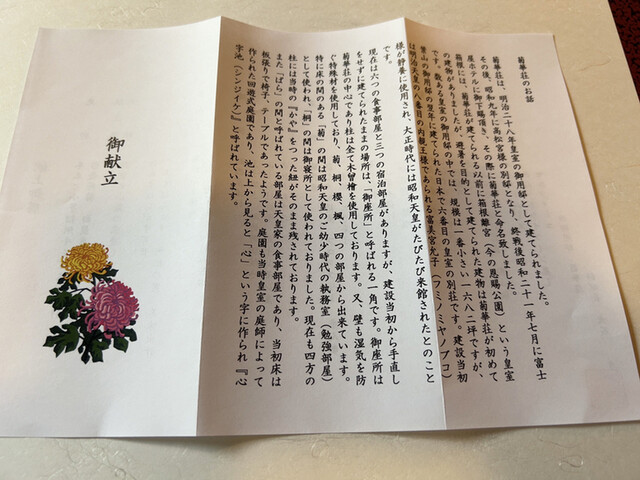 菊華荘のお話
菊華荘は、明治二十八年皇室の御用邸として建てられました。
その後、昭和九年に高松宮様の別邸となり、終戦後昭和二十一年七月に富士
屋ホテルに御下賜頂き、その際に菊華荘と命名致しました。
箱根には、菊華荘が建てられる以前に箱根離宮(今の恩賜公園)という皇室
の建物がありましたが、避暑を目的として建てられた建物は菊華荘が初めて
です。数ある皇室の御用邸の中では、規模は一番小さい一六八二坪ですが、
葉山の御用邸の翌年に建てられた日本で六番目の皇室の別荘です。建設当初
は明治天皇の八番目の内親王様であられる富美宮允子(フミノミヤノブコ)
様が静養に使用され、大正時代には昭和天皇がたびたび来館されたとのこと
です。
現在は六つの食事部屋と三つの宿泊部屋がありますが、建設当初から手直し
をせずに建てられたままの場所は、「御座所」と呼ばれる一角です。御座所は
菊華荘の中心であり柱は全て木曽檜を使用しております。又、壁も湿気を防
ぐ特殊材を使用しており、菊、桐、櫻、楓、四つの部屋から出来ています。
特に床の間のある「菊」の間は昭和天皇のご幼少時代の執務室(勉強部屋)
として使われ、「桐」の間は御寝所として使われておりました。現在も四方の
柱には当時の『かや』をつった紐がそのまま残されております。
また「ばら」の間と呼ばれている部屋は天皇家の食事部屋であり、当初床は
板張りで椅子、テーブルであったようです。庭園も当時皇室の庭師によって
作られた回遊式庭園であり、池は上から見ると「心」という字に作られ『心
字池(シンジイケ)』と呼ばれています。
御献立